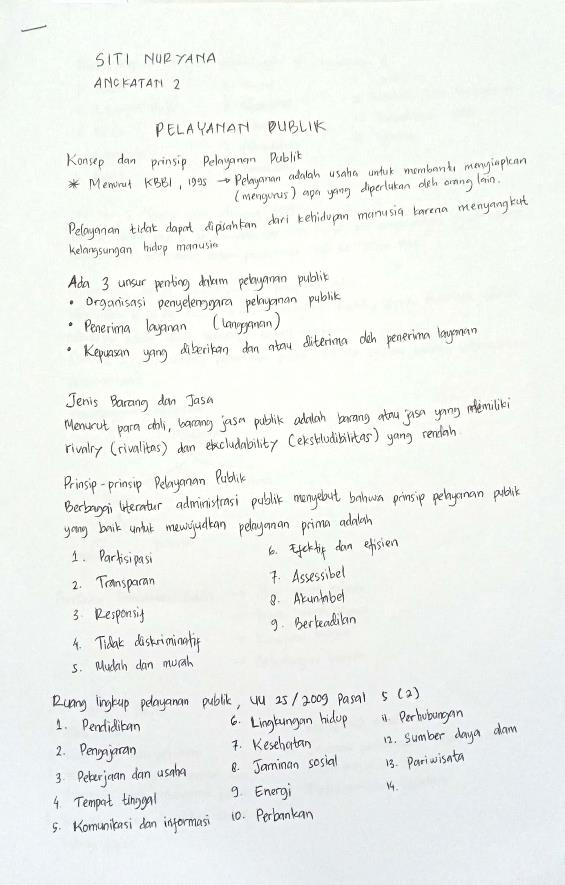 SITI NURYANA
ANGKATAN 2
PELAYANAN PUBLIK
Konsep dan prinsip Pelayanan Publik
* Menurut KBBI, 1995 → Pelayanan adalah usaha untuk membantu menyiapkan
(mengurus) apa yang diperlukan oleh orang lain.
Pelayanan tidak dapat dipisahkan dari kehidupan manusia karena menyangkut
kelangsungan hidup manusia
Ada 3 unsur penting dalam pelayanan publik
• Organisasi penyelenggara pelayanan publik
• Penerima layanan (langganan)
• Kepuasan yang diberikan dan atau diterima oleh penerima layanan
Jenis Barang dan Jasa
Menurut para ahli, barang jasa publik adalah barang atau jasa yang memiliki
rivalry (rivalitas) dan excludability (eksludibilitas) yang rendah.
Prinsip-prinsip Pelayanan Publik
Berbagai literatur administrasi publik menyebut bahwa prinsip pelayanan publik
yang baik untuk mewujudkan pelayanan prima adalah
1. Partisipasi
2. Transparan
3. Responsif
4. Tidak diskriminatif
5. Mudah dan murah
6. Efektif dan efisien
7. Assessibel
8. Akuntabel
9. Berkeadilan
Ruang lingkup pelayanan publik, UU 25/2009 Pasal 5 (2)
1. Pendidikan
2. Pengajaran
3. Pekerjaan dan usaha
4. Tempat tinggal
5. Komunikasi dan informasi
6. Lingkungan hidup
7. Kesehatan
8. Jaminan sosial
9. Energi
10. Perbankan
11. Perhubungan
12. Sumber daya alam
13. Pariwisata
14.